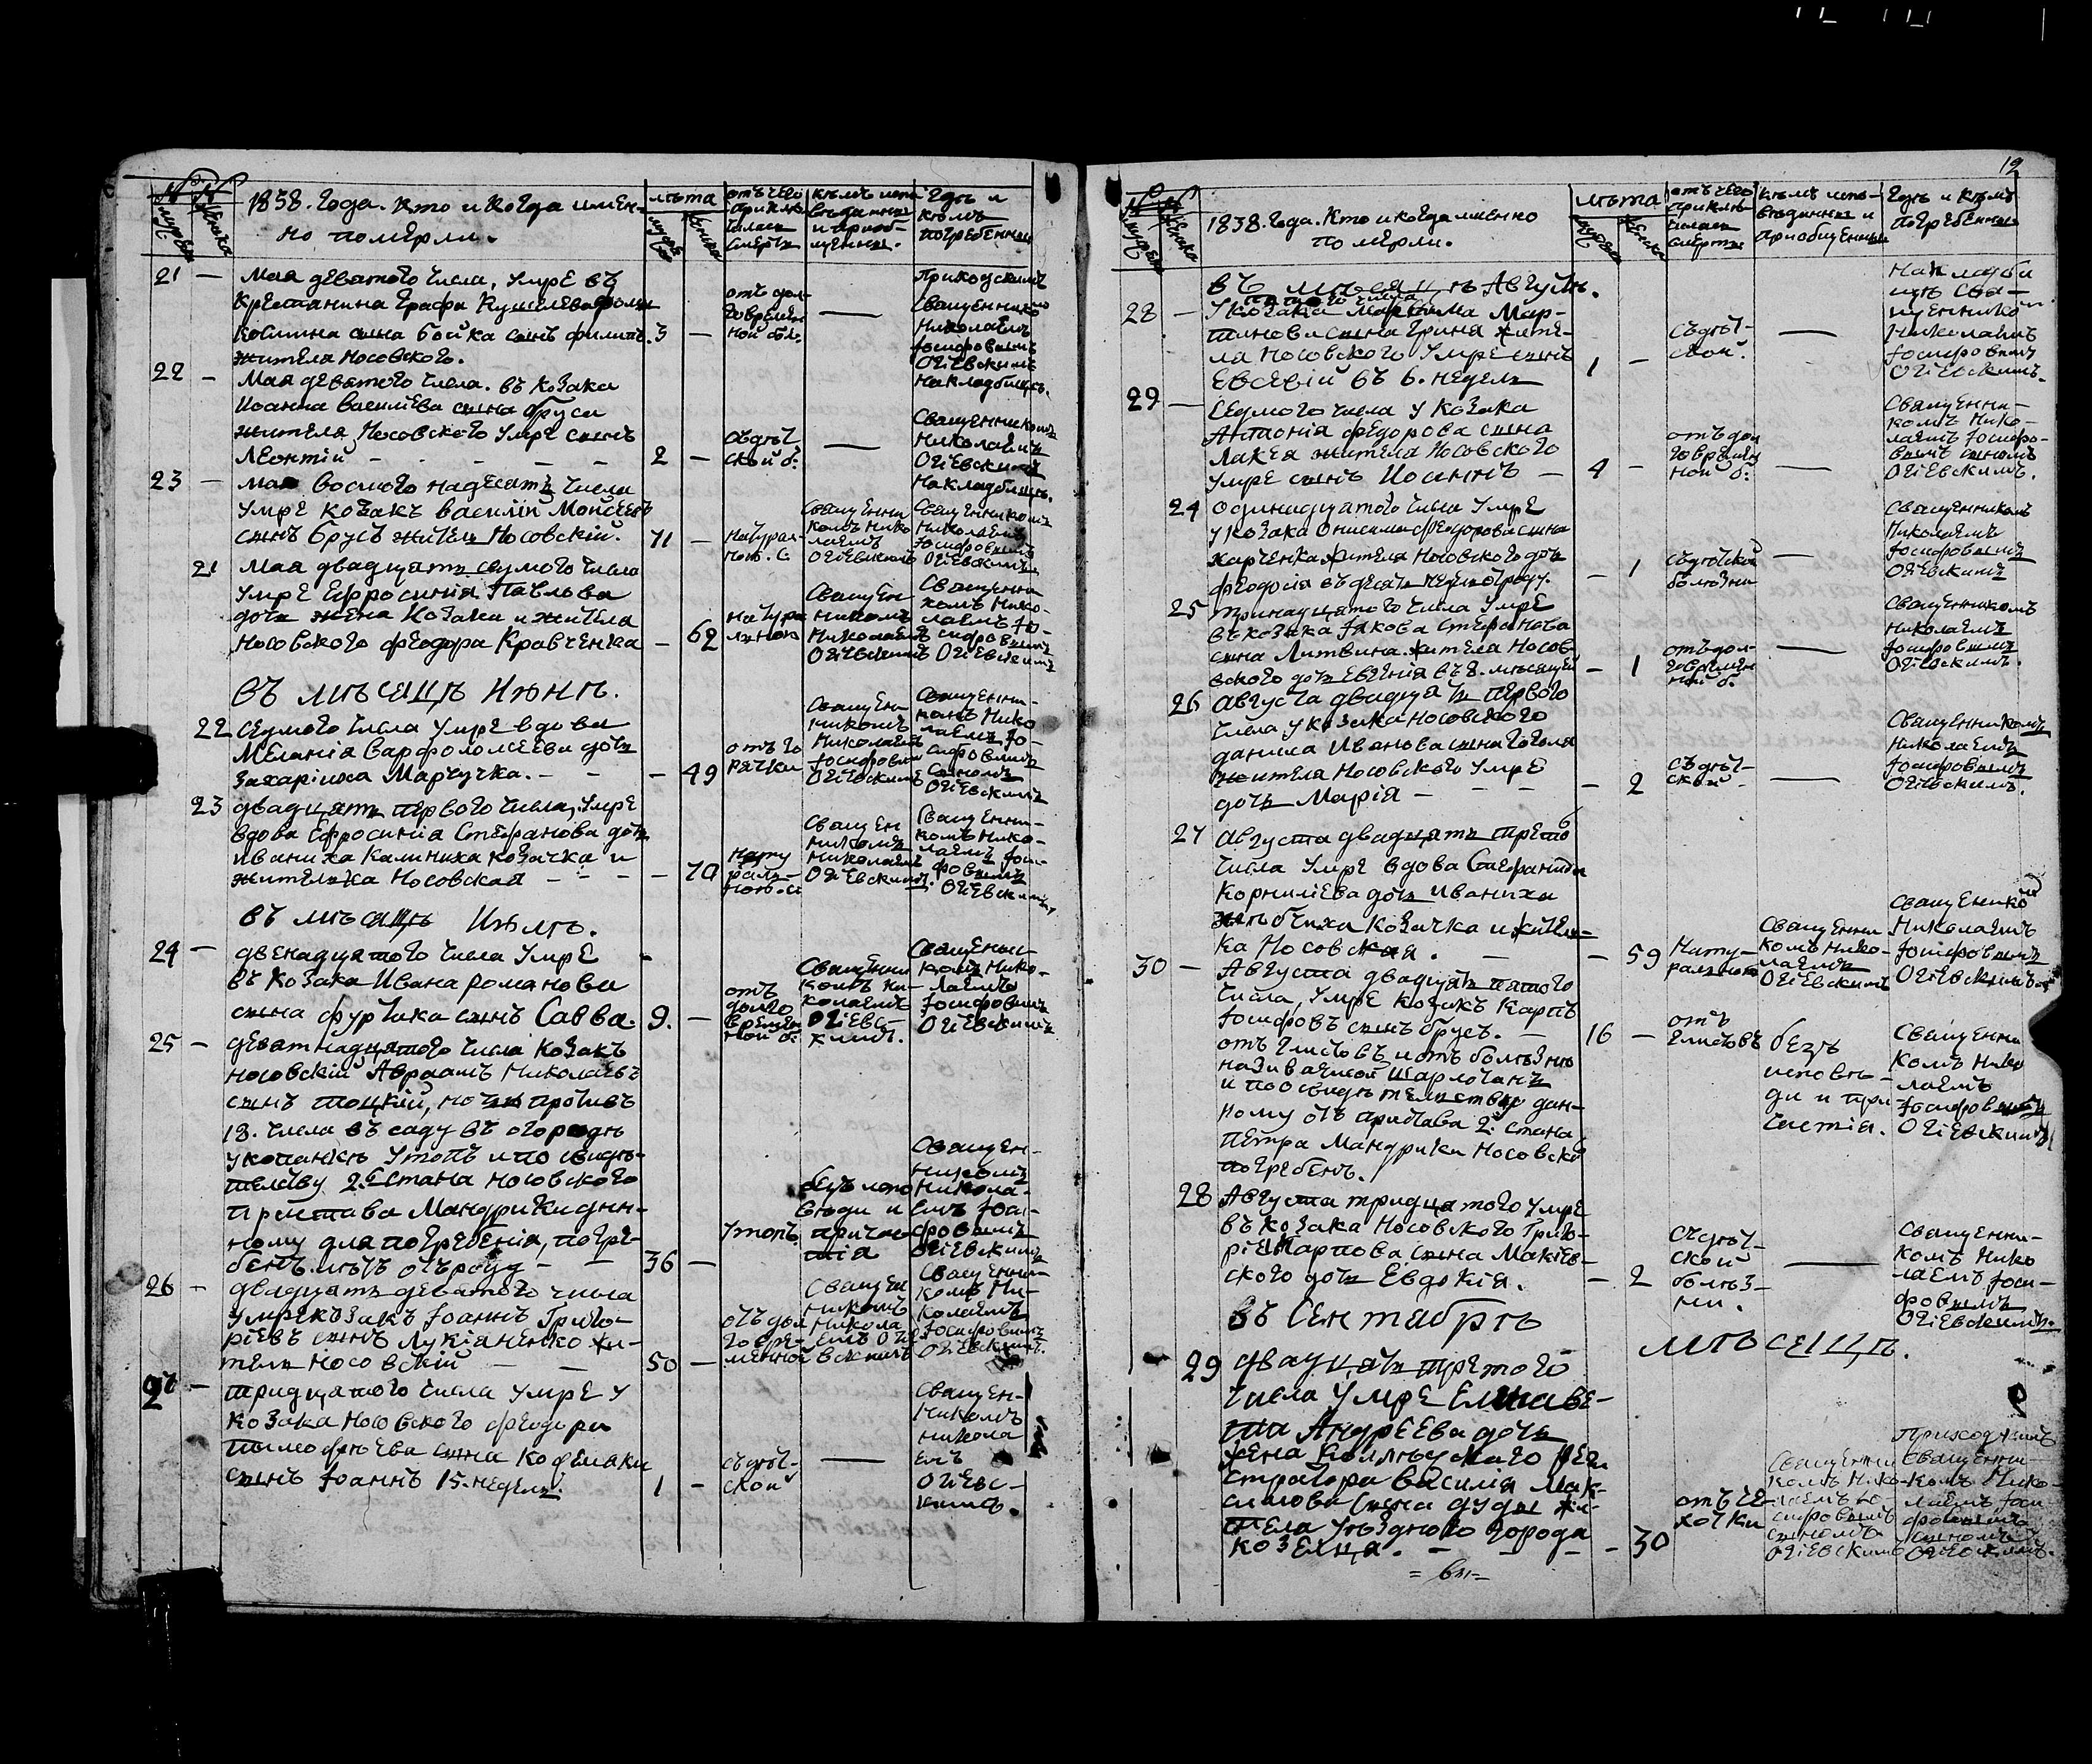 1838. Года. Кто и Когда имен-
но померли.
лѣта
отъ чего
приклю-
чилась
смерть
Гдѣ и
кѣмъ
погребенны
21 — Мая деватого числа, Умре въ
Крестанина Графа
сына Бойка сынъ Филипъ. 3 —
жителя Носовского.
отъ дол-
говремен
ной бол.
—
Приходскимъ
Священнико
Николаемъ
Іосифовымъ
Огіевскимъ
На кладбищѣ.
22 — Мая деватого числа. въ Козака
Иоанна Василіева сына Бруса
жителя Носовского Умре сынъ
Леонтій — — — — — 2 —
съдѣт
ской б.
—
Священникомъ
Николаемъ
Огіевскимъ
На кладбищѣ.
23 — Мая восмого надесать числа
Умре козакъ Василій Мойсеевъ
сынъ Брусъ житель Носовскій. 71 —
Натурал-
ною. с.
Священни
комъ Нико
лаемъ
Огіевскимъ
Священникомъ
Николаемъ
Іосифовымъ
Огіевскимъ
21 Мая двадцать седмого числа
Умре Ефросинія Павлова
дочь жена Козака и жителя
Носовского Феодора Кравченка — 62
Натура
лною
Священ
никомъ
Николаемъ
Огіевскимъ
Священни
комъ Нико-
лаемъ Іо-
сифовымъ
Огіевскимъ
въ мѣсяцѣ Июнѣ.
22 Седмого числа Умре вдова
Меланія Варфоломеева дочь
Захаріиха Марчучка. — — — 49
отъ го
рячки
Священ
никомъ
Николаемъ
Іосифовым
Огіевскимъ
Священни-
комъ Нико
лаемъ Іо-
сифовымъ
сыномъ
Огіевскимъ
23 двадцать первого числа, Умре
вдова Ефросинія Стефанова дочь
Иваниха Калиниха козачка и
жителька Носовская — — — — 70
Нату
раль-
ною. с.
Священ
никомъ
Николаем
Огіевскимъ.
Священни-
комъ Нико-
лаемъ Іоси-
фовымъ
Огіевскимъ
въ мѣсяцѣ Июлѣ.
24 — двенадцатого числа Умре
въ Козака Ивана Романова
сына Фурсика сынъ Савва. 9. —
отъ
долго
времен
ной б.
Священни
комъ Ни-
колаемъ
Огіевс-
кимъ.
Священни-
комъ Нико-
лаемъ
Іосифовымъ
Огіевскимъ
25 — деватнадцатого числа Козакъ
Носовскій Авраамъ Николаевъ
сынъ Тоцкій, ночью противъ
18. числа въ саду въ огородѣ
у копанкѣ утопъ и по свидѣ-
телству 2. Стана Носовского
Пристава Мандрики дан-
ному для погребенія, погре-
бенъ. лѣтъ отъ роду — — 36 —
Утопъ.
безъ испо
вѣди и
причас
тія
Священ-
никомъ
Никола-
емъ Іоси-
фовымъ
Огіевскимъ
26 — двадцать деватого числа
Умре Козакъ Іоаннъ Григо-
ріевъ сынъ Лукіаненко жи-
тель Носовскій — — 50 —
отъ дол
говре-
менной
Священ
никомъ
Никола
емъ Огіе
вскимъ
Священни-
комъ Ни-
колаемъ
Іосифовымъ
Огіевскимъ.
27 — тридцатого числа Умре у
козака Носовского Феодора
Тимофѣева сына Кофенки
сынъ Іоаннъ 15. недель. 1 —
съдѣт-
ской
—
Священ-
никомъ
Никола
емъ
Огіевс-
кимъ.
12
1838. Года. Кто и когда именно
померли.
лѣта
отъ чего
приклю-
чилась
смерть
кѣмъ испо-
вѣданны и
приобщенны
Гдѣ и Кѣмъ
погребенны
въ мѣсяцѣ Августѣ.
28 — пятого числа
У козака Максима Мар-
тинова сына Гриня жите-
ля Носовского Умре сынъ 1 —
Евсевій въ 6. недель
съдѣт-
ской.
—
На кладби
щѣ Свя-
щеннико
Николаемъ
Іосифовымъ
Огіевскимъ.
29 — Седмого числа у Козака
Антонія Федорова сына
Лакея жителя Носовского
Умре сынъ Иоаннъ — 4 —
отъ дол
говремен
ной б.
—
Священни-
комъ Нико-
лаемъ Іосифо-
вымъ сыномъ
Огіевскимъ.
24 Одинадцатого числа Умре
у Козака Онисима Феодорова сына
Харченка жителя Носовского дочь
Феодосія въ десать недель отроду. — 1
съдѣтской
болѣзни
—
Священникомъ
Николаемъ
Іосифовымъ
Огіевскимъ
25 Тринадцатого числа Умре
въ козака Іакова Стефанова
сына Литвина. жителя Носов-
вского дочь Евгенія въ 8. мѣсяцей — 1
отъ дол-
говремен
ной б.
—
Священникомъ
Николаемъ
Іосифовымъ
Огіевскимъ.
26 Августа двадцать первого
числа у козака Носовского
Данила Иванова сына Гоголя
жителя Носовского Умре
дочь Марія — — — — 2
съдѣт-
ской
—
Священникомъ
Николаемъ
Іосифовымъ
Огіевскимъ.
27 Августа двадцать трето
числа Умре вдова Стефанида
Корниліева дочь Иваниха
козачка и жител-
ка Носовская. — — 59
Нату-
ральною
Священни
комъ Нико-
лаемъ
Огіевскимъ
Священнико
Николаемъ
Іосифовымъ
Огіевскимъ.
30 — Августа двадцать пятого
числа, Умре козакъ Карпъ
Іосифовъ сынъ Брусъ. — 16 —
отъ глистовъ и отъ болѣзню
називаемой шарлотанъ
и по освидѣтелству дан-
ному отъ пристава 2. стана
Петра Мандрики Носовско
погребенъ.
отъ
глистовъ
безъ
исповѣ-
ди и при
частія.
Священни
комъ Нико
лаемъ
Іосифовымъ
Огіевскимъ
28 Августа тридцатого Умре
въ козака Носовского Григо-
рія Карпова сына Макіев-
ского дочь Евдокія. — 2
съдѣт-
ской
болѣз-
ни.
—
Священни-
комъ Нико
лаемъ Іоси-
фовымъ
Огіевскимъ.
Въ Сентабрѣ
мѣсецѣ.
29 двадцать третого
числа Умре Елисаве-
та Андреева дочь
жена Реги
стратора Василія Мак-
симова сына Дуды жи-
теля уѣздного города
Козельца. — — — — 30
отъ че-
хотки
Священни
комъ Нико-
лаемъ Іо-
сифовымъ
сыномъ
Огіевскимъ
Приходскимъ
Священни-
комъ Нико-
лаемъ Іоси
фовымъ
сыномъ
Огіевскимъ.